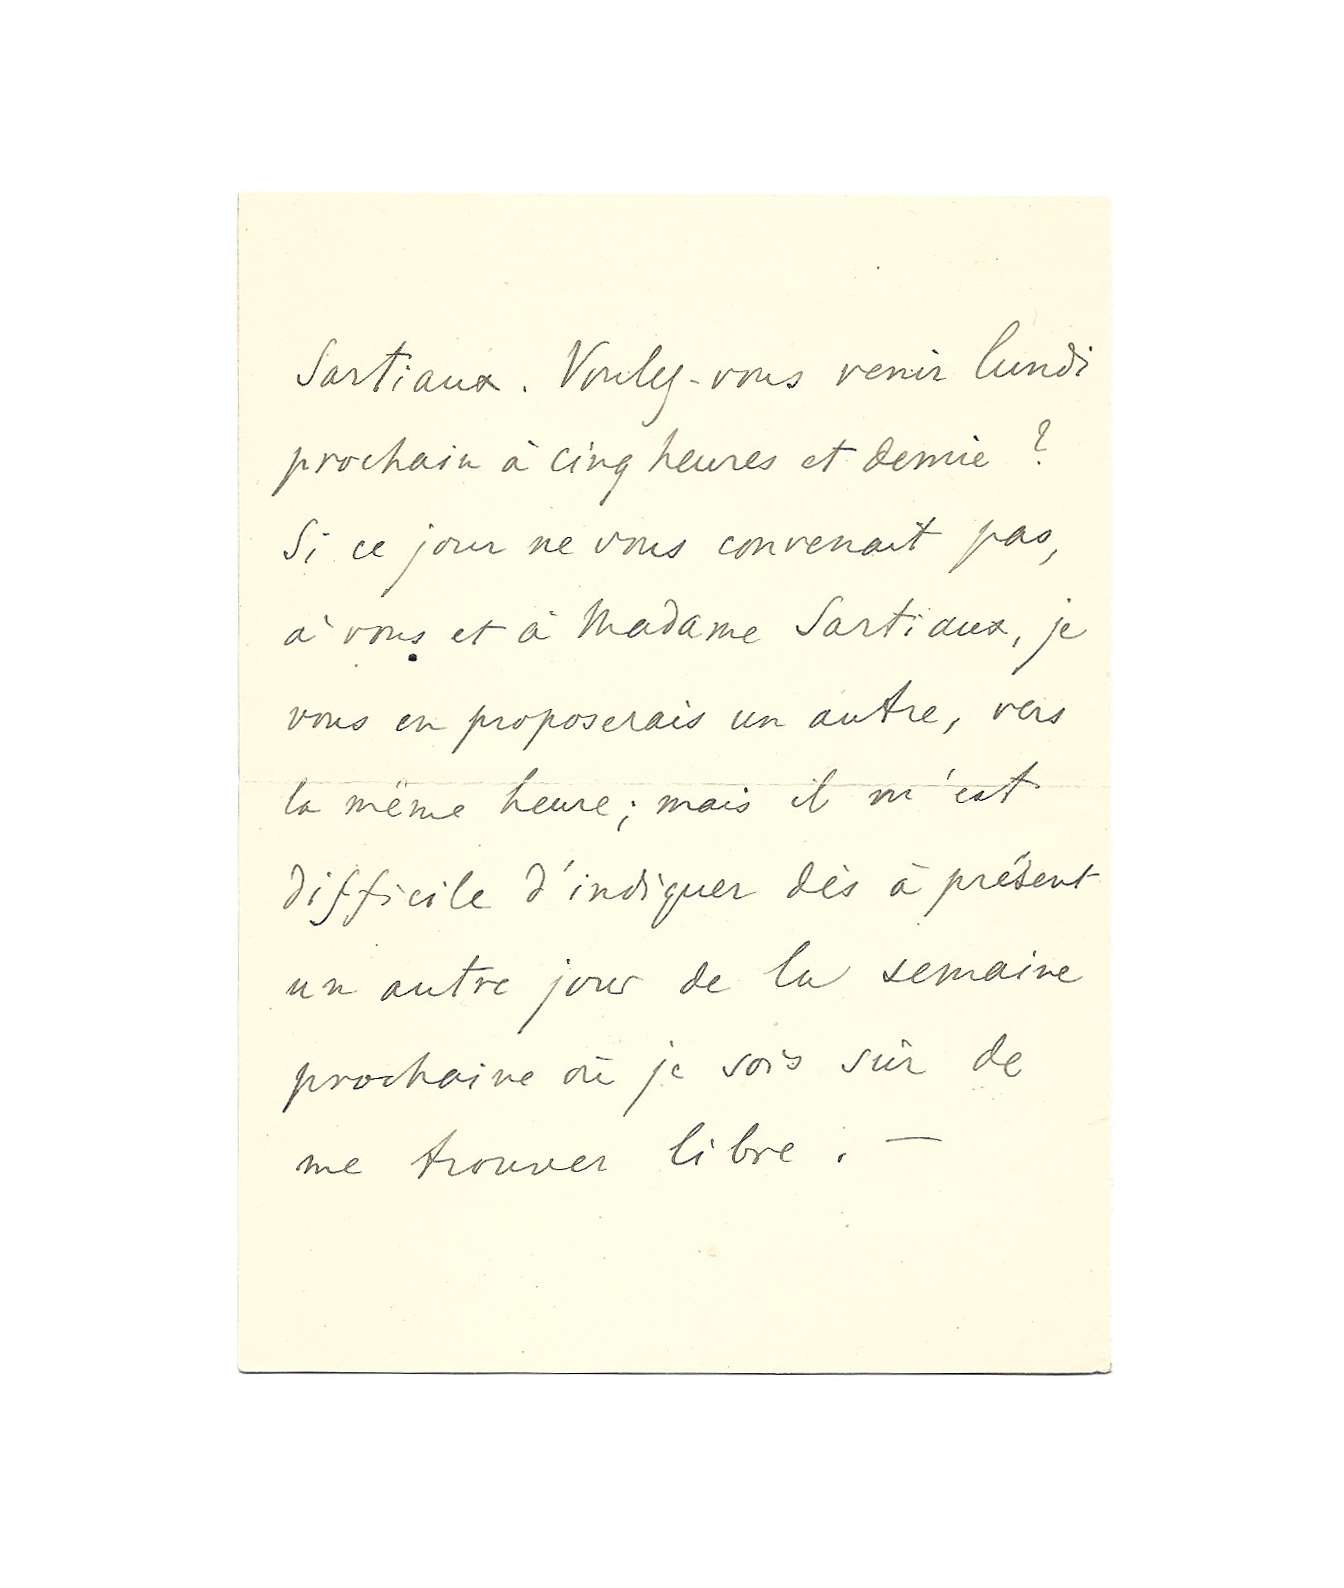 Sartiaux. Voulez-vous venir lundi
prochain à cinq heures et demie ?
Si ce jour ne vous convenait pas,
à vous et à Madame Sartiaux, je
vous en proposerais un autre, vers
la même heure ; mais il m'est
difficile d'indiquer dès à présent
un autre jour de la semaine
prochaine où je sois sûr de
me trouver libre. —